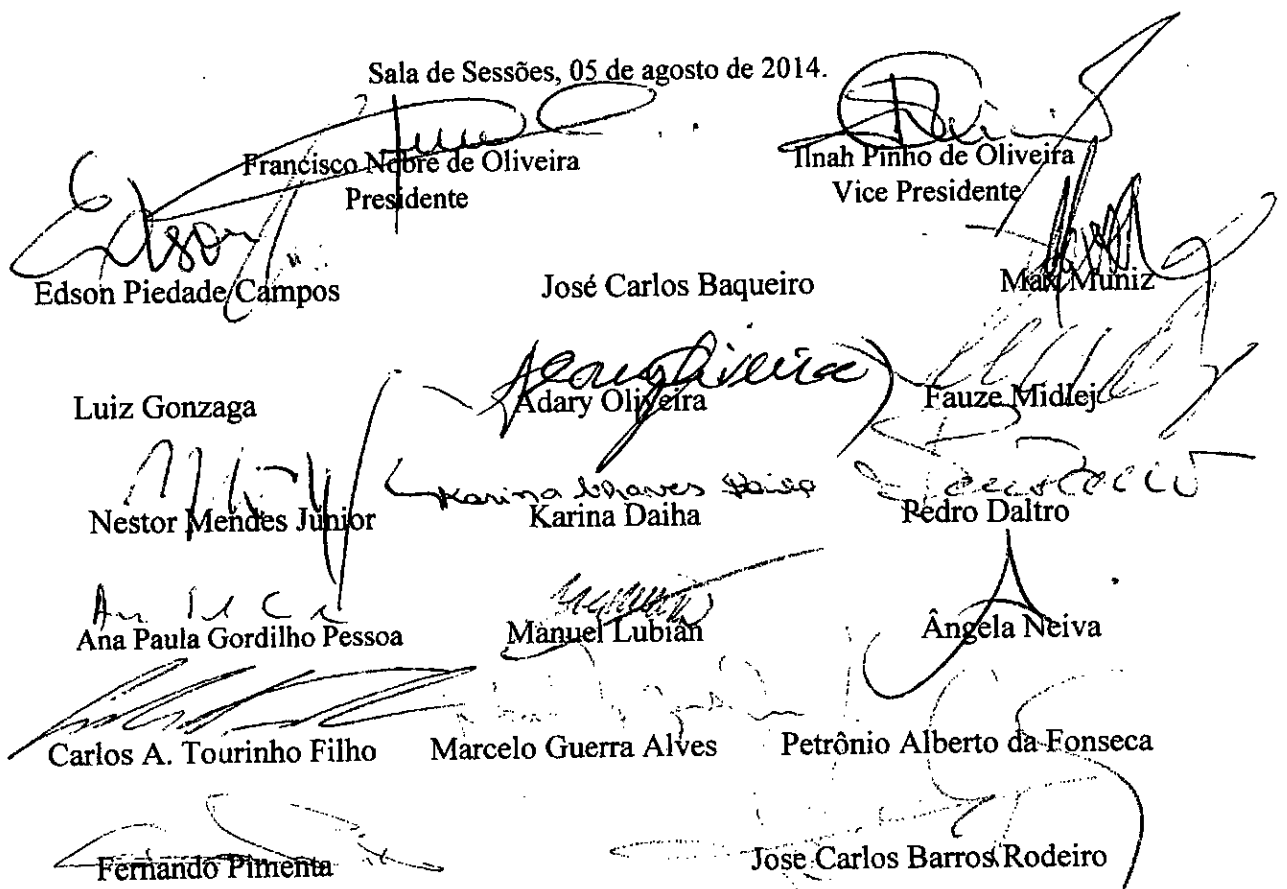 Sala de Sessões, 05 de agosto de 2014.
Francisco Nobre de Oliveira
Presidente
Ilnah Pinho de Oliveira
Vice Presidente
Edson
Edson Piedade Campos
José Carlos Baqueiro
Max Muniz
Luiz Gonzaga
Adary Oliveira
Fauze Midlej
Karina Chaves Daiha
Nestor Mendes Júnior
Karina Daiha
Pedro Daltro
Ana Paula Gordilho Pessoa
Manuel Lubian
Ângela Neiva
Carlos A. Tourinho Filho
Marcelo Guerra Alves
Petrônio Alberto da Fonseca
Fernando Pimenta
Jose Carlos Barros Rodeiro